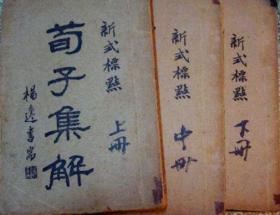 新式標點
荀子集解
上冊
新式標點
中冊
新式標點
下冊